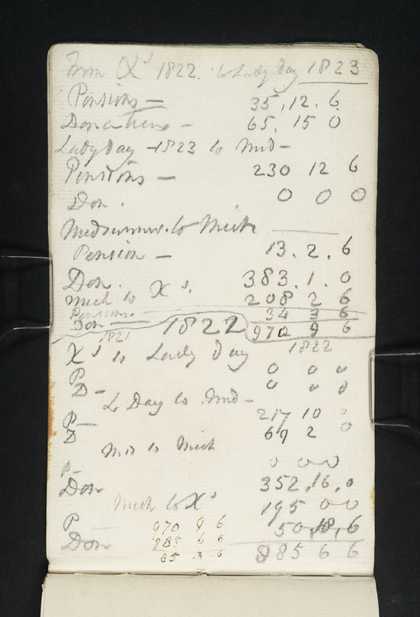 From Xs 1822. to Lady Day 1823
Pensions — 35, 12. 6
Donations — 65, 15 0
Lady Day - 1823 to Mid -
Pensions — 230 12 6
Don. 0 0 0
Midsummer. to Mich
Pension — 13. 2. 6
Don. 383. 1. 0
Mich to Xs. 208 2 6
Pensions 34 3 6
Don — 1822 970 9 6
1821 1822
Xs to Lady day
P 0 0 0
D — 0 0 0
L Day to Mid -
P — 217 10 0
D 69 2 0
Mid to Mich
P - 0 0 0
Don 352, 16, 0
Mich to Xs 195 0 0
P 970 9 6 50, 18, 6
Don 885 6 6 885 6 6
85 3 6